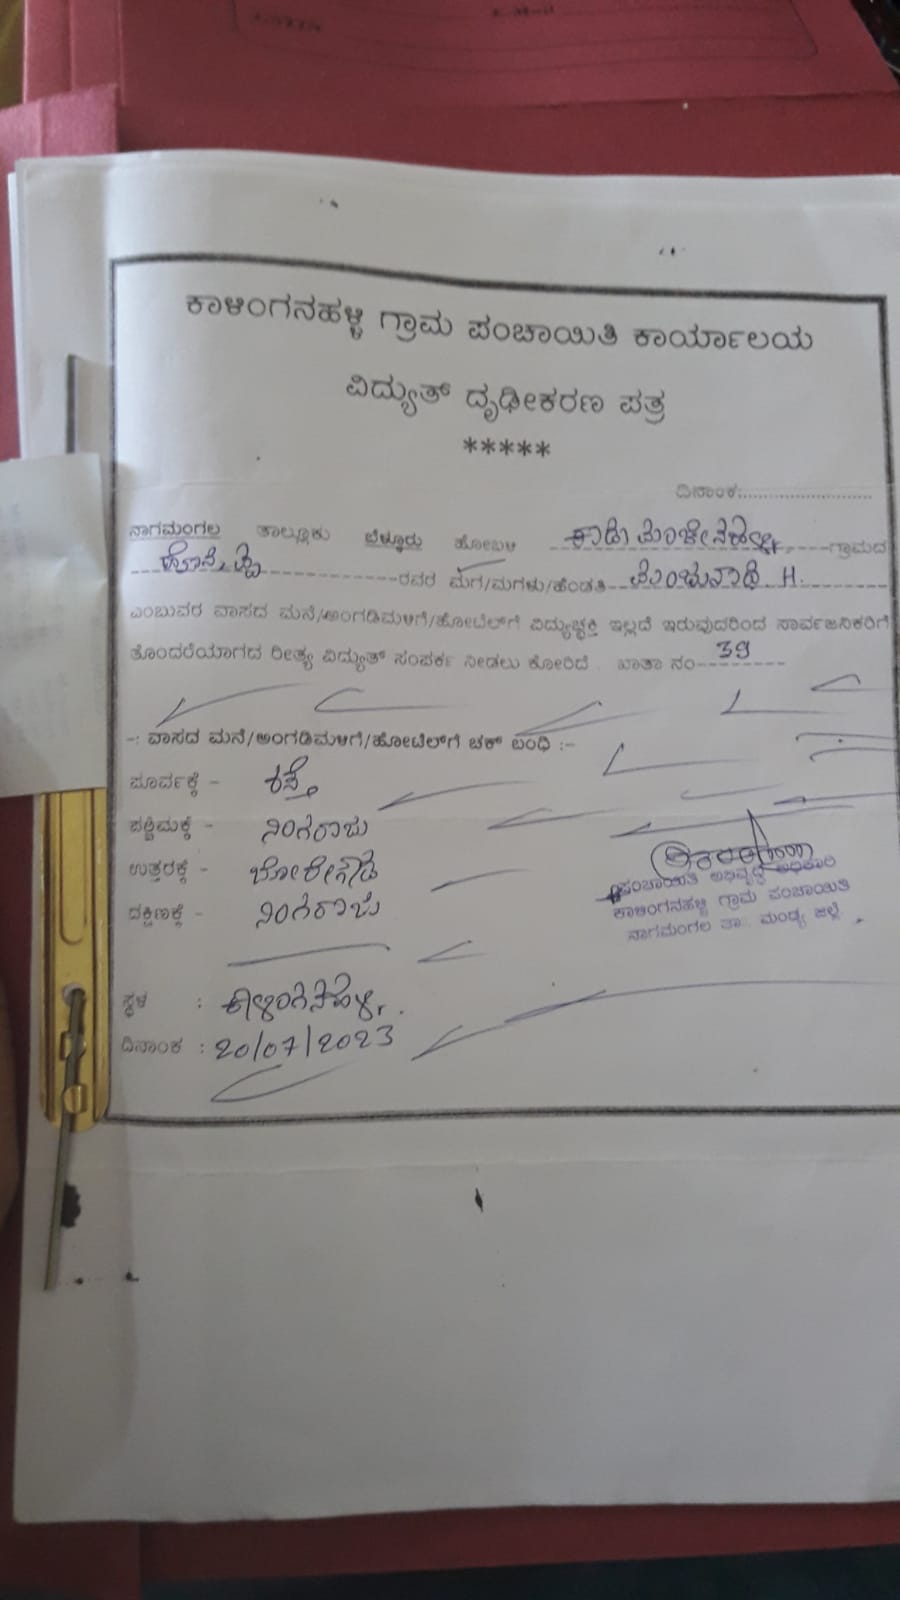 ಕಾಳಿಂಗನಹಳ್ಳಿ ಗ್ರಾಮ ಪಂಚಾಯಿತಿ ಕಾರ್ಯಾಲಯ
ವಿದ್ಯುತ್ ದೃಢೀಕರಣ ಪತ್ರ
*****
ದಿನಾಂಕ:............................
ನಾಗಮಂಗಲ ತಾಲ್ಲೂಕು ಬೆಳ್ಳೂರು ಹೋಬಳಿ ಗ್ರಾಮದ
ರವರ ಮಗ/ಮಗಳು/ಹೆಂಡತಿ ಮಂಜುನಾಥ H.
ಎಂಬುವರ ವಾಸದ ಮನೆ/ಅಂಗಡಿಮಳಿಗೆ/ಹೋಟೆಲ್‌ಗೆ ವಿದ್ಯುಚ್ಛಕ್ತಿ ಇಲ್ಲದೆ ಇರುವುದರಿಂದ ಸಾರ್ವಜನಿಕರಿಗೆ
ತೊಂದರೆಯಾಗದ ರೀತ್ಯ ವಿದ್ಯುತ್ ಸಂಪರ್ಕ ನೀಡಲು ಕೋರಿದೆ. ಖಾತಾ ನಂ 39
-: ವಾಸದ ಮನೆ/ಅಂಗಡಿಮಳಿಗೆ/ಹೋಟೆಲ್‌ಗೆ ಚಕ್ ಬಂಧಿ :-
ಪೂರ್ವಕ್ಕೆ - ರಸ್ತೆ
ಪಶ್ಚಿಮಕ್ಕೆ - ನಿಂಗರಾಜು
ಉತ್ತರಕ್ಕೆ - ಬೋರೇಗೌಡ
ದಕ್ಷಿಣಕ್ಕೆ - ನಿಂಗರಾಜು
ಪಂಚಾಯಿತಿ ಅಭಿವೃದ್ಧಿ ಅಧಿಕಾರಿ
ಕಾಳಿಂಗನಹಳ್ಳಿ ಗ್ರಾಮ ಪಂಚಾಯಿತಿ
ನಾಗಮಂಗಲ ತಾ.. ಮಂಡ್ಯ ಜಿಲ್ಲೆ.
ಸ್ಥಳ : ಕಾಳಿಂಗನಹಳ್ಳಿ.
ದಿನಾಂಕ : 20/07/2023